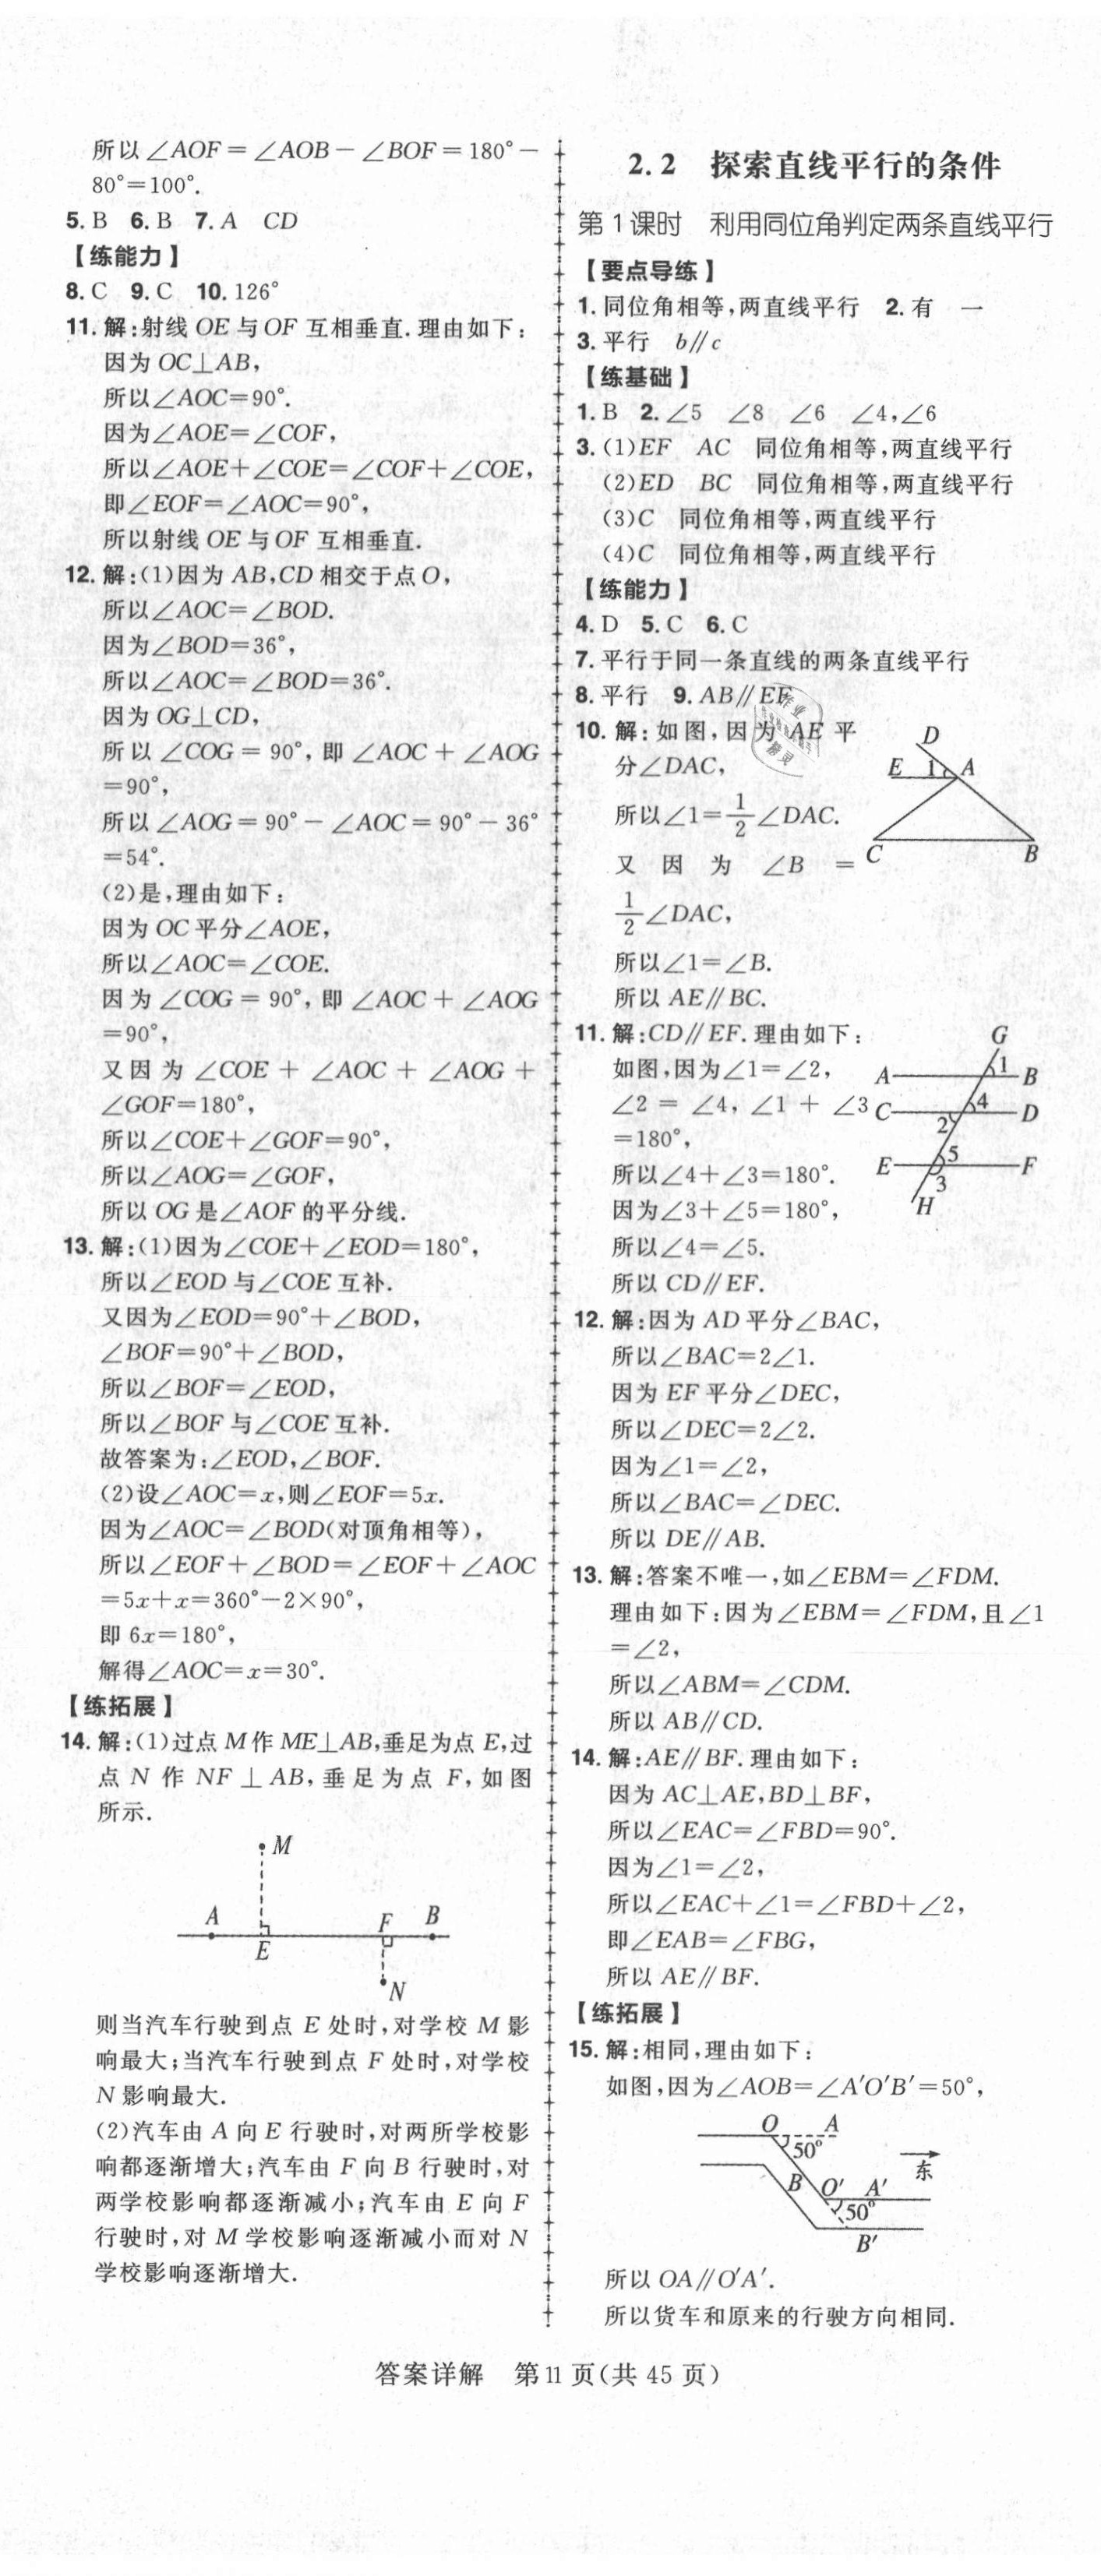 所以∠AOF=∠AOB-∠BOF=180°-
80°=100°.
5. B 6. B 7. A CD
【练能力】
8. C 9. C 10. 126°
11. 解:射线OE与OF互相垂直.理由如下:
因为OC⊥AB,
所以∠AOC=90°.
因为∠AOE=∠COF,
所以∠AOE+∠COE=∠COF+∠COE,
即∠EOF=∠AOC=90°,
所以射线OE与OF互相垂直.
12. 解:(1)因为AB,CD相交于点O,
所以∠AOC=∠BOD.
因为∠BOD=36°,
所以∠AOC=∠BOD=36°.
因为OG⊥CD,
所以∠COG=90°,即∠AOC+∠AOG
=90°,
所以∠AOG=90°-∠AOC=90°-36°
=54°.
(2)是,理由如下:
因为OC平分∠AOE,
所以∠AOC=∠COE.
因为∠COG=90°,即∠AOC+∠AOG
=90°,
又因为∠COE+∠AOC+∠AOG+
∠GOF=180°,
所以∠COE+∠GOF=90°,
所以∠AOG=∠GOF,
所以OG是∠AOF的平分线.
13. 解:(1)因为∠COE+∠EOD=180°,
所以∠EOD与∠COE互补.
又因为∠EOD=90°+∠BOD,
∠BOF=90°+∠BOD,
所以∠BOF=∠EOD,
所以∠BOF与∠COE互补.
故答案为:∠EOD,∠BOF.
(2)设∠AOC=x,则∠EOF=5x.
因为∠AOC=∠BOD(对顶角相等),
所以∠EOF+∠BOD=∠EOF+∠AOC
=5x+x=360°-2×90°,
即6x=180°,
解得∠AOC=x=30°.
【练拓展】
14. 解:(1)过点M作ME⊥AB,垂足为点E,过
点N作NF⊥AB,垂足为点F,如图
所示.
M
A F B
E
N
则当汽车行驶到点E处时,对学校M影
响最大;当汽车行驶到点F处时,对学校
N影响最大.
(2)汽车由A向E行驶时,对两所学校影
响都逐渐增大;汽车由F向B行驶时,对
两学校影响都逐渐减小;汽车由E向F
行驶时,对M学校影响逐渐减小而对N
学校影响逐渐增大.
2.2 探索直线平行的条件
第1课时 利用同位角判定两条直线平行
【要点导练】
1. 同位角相等,两直线平行 2. 有 一
3. 平行 b∥c
【练基础】
1. B 2. ∠5 ∠8 ∠6 ∠4,∠6
3. (1)EF AC 同位角相等,两直线平行
(2)ED BC 同位角相等,两直线平行
(3)C 同位角相等,两直线平行
(4)C 同位角相等,两直线平行
【练能力】
4. D 5. C 6. C
7. 平行于同一条直线的两条直线平行
8. 平行 9. AB∥EF
10. 解:如图,因为AE平
分∠DAC,
所以∠1=1/2∠DAC.
又因为∠B=
1/2∠DAC,
所以∠1=∠B.
所以AE∥BC.
D
E 1 A
C B
11. 解:CD∥EF.理由如下:
如图,因为∠1=∠2,
∠2=∠4,∠1+∠3
=180°,
所以∠4+∠3=180°.
因为∠3+∠5=180°,
所以∠4=∠5.
所以CD∥EF.
G
A 1 B
C 4 D
2
E 5 F
3
H
12. 解:因为AD平分∠BAC,
所以∠BAC=2∠1.
因为EF平分∠DEC,
所以∠DEC=2∠2.
因为∠1=∠2,
所以∠BAC=∠DEC.
所以DE∥AB.
13. 解:答案不唯一,如∠EBM=∠FDM.
理由如下:因为∠EBM=∠FDM,且∠1
=∠2,
所以∠ABM=∠CDM.
所以AB∥CD.
14. 解:AE∥BF.理由如下:
因为AC⊥AE,BD⊥BF,
所以∠EAC=∠FBD=90°.
因为∠1=∠2,
所以∠EAC+∠1=∠FBD+∠2,
即∠EAB=∠FBG,
所以AE∥BF.
【练拓展】
15. 解:相同,理由如下:
如图,因为∠AOB=∠A′O′B′=50°,
O A
50°
东
B O′ A′
50°
B′
所以OA∥O′A′.
所以货车和原来的行驶方向相同.
答案详解 第11页(共45页)